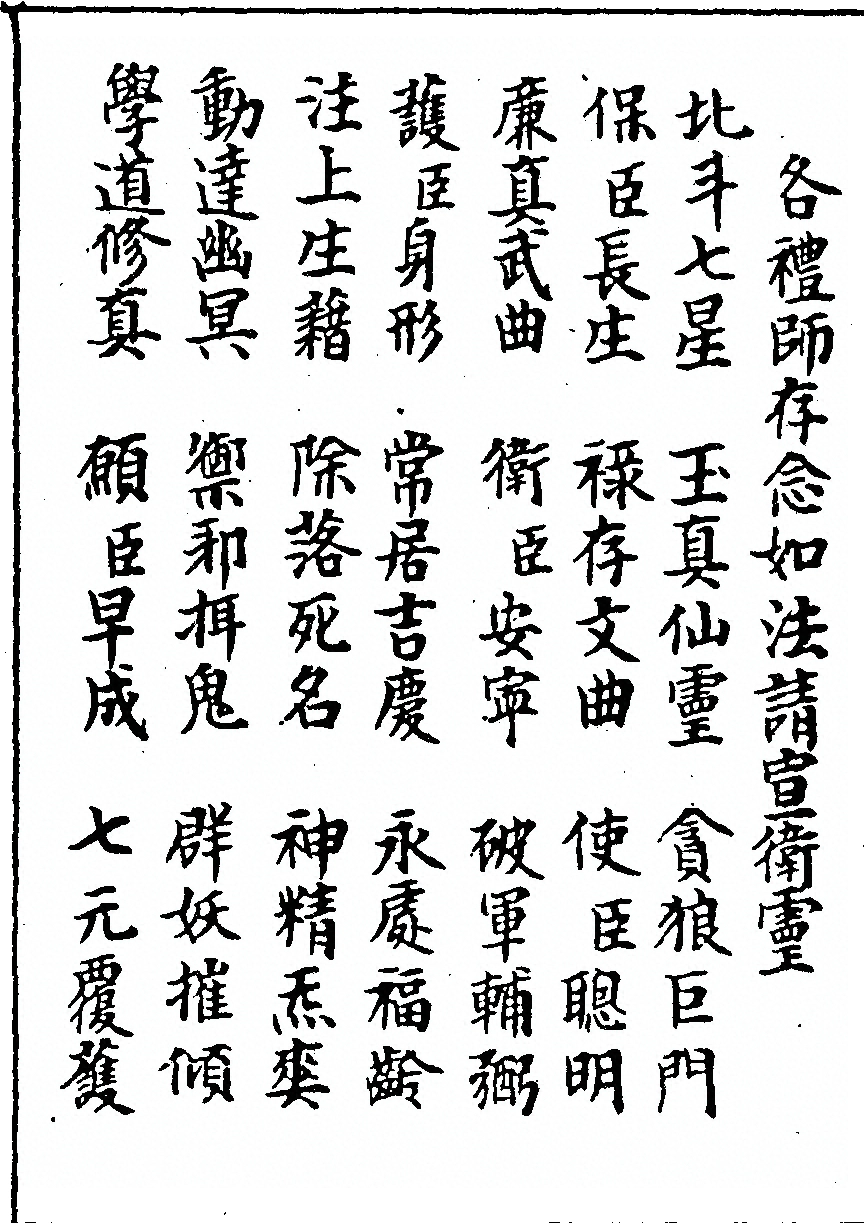 各禮師存念如法請宣衛靈
北斗七星 玉真仙靈 貪狼巨門
保臣長生 祿存文曲 使臣聰明
廉真武曲 衛臣安寧 破軍輔弼
護臣身形 常居吉慶 永處福齡
注上生籍 除落死名 神精炁爽
動達幽冥 禦邪捐鬼 群妖摧傾
學道修真 願臣早成 七元覆護